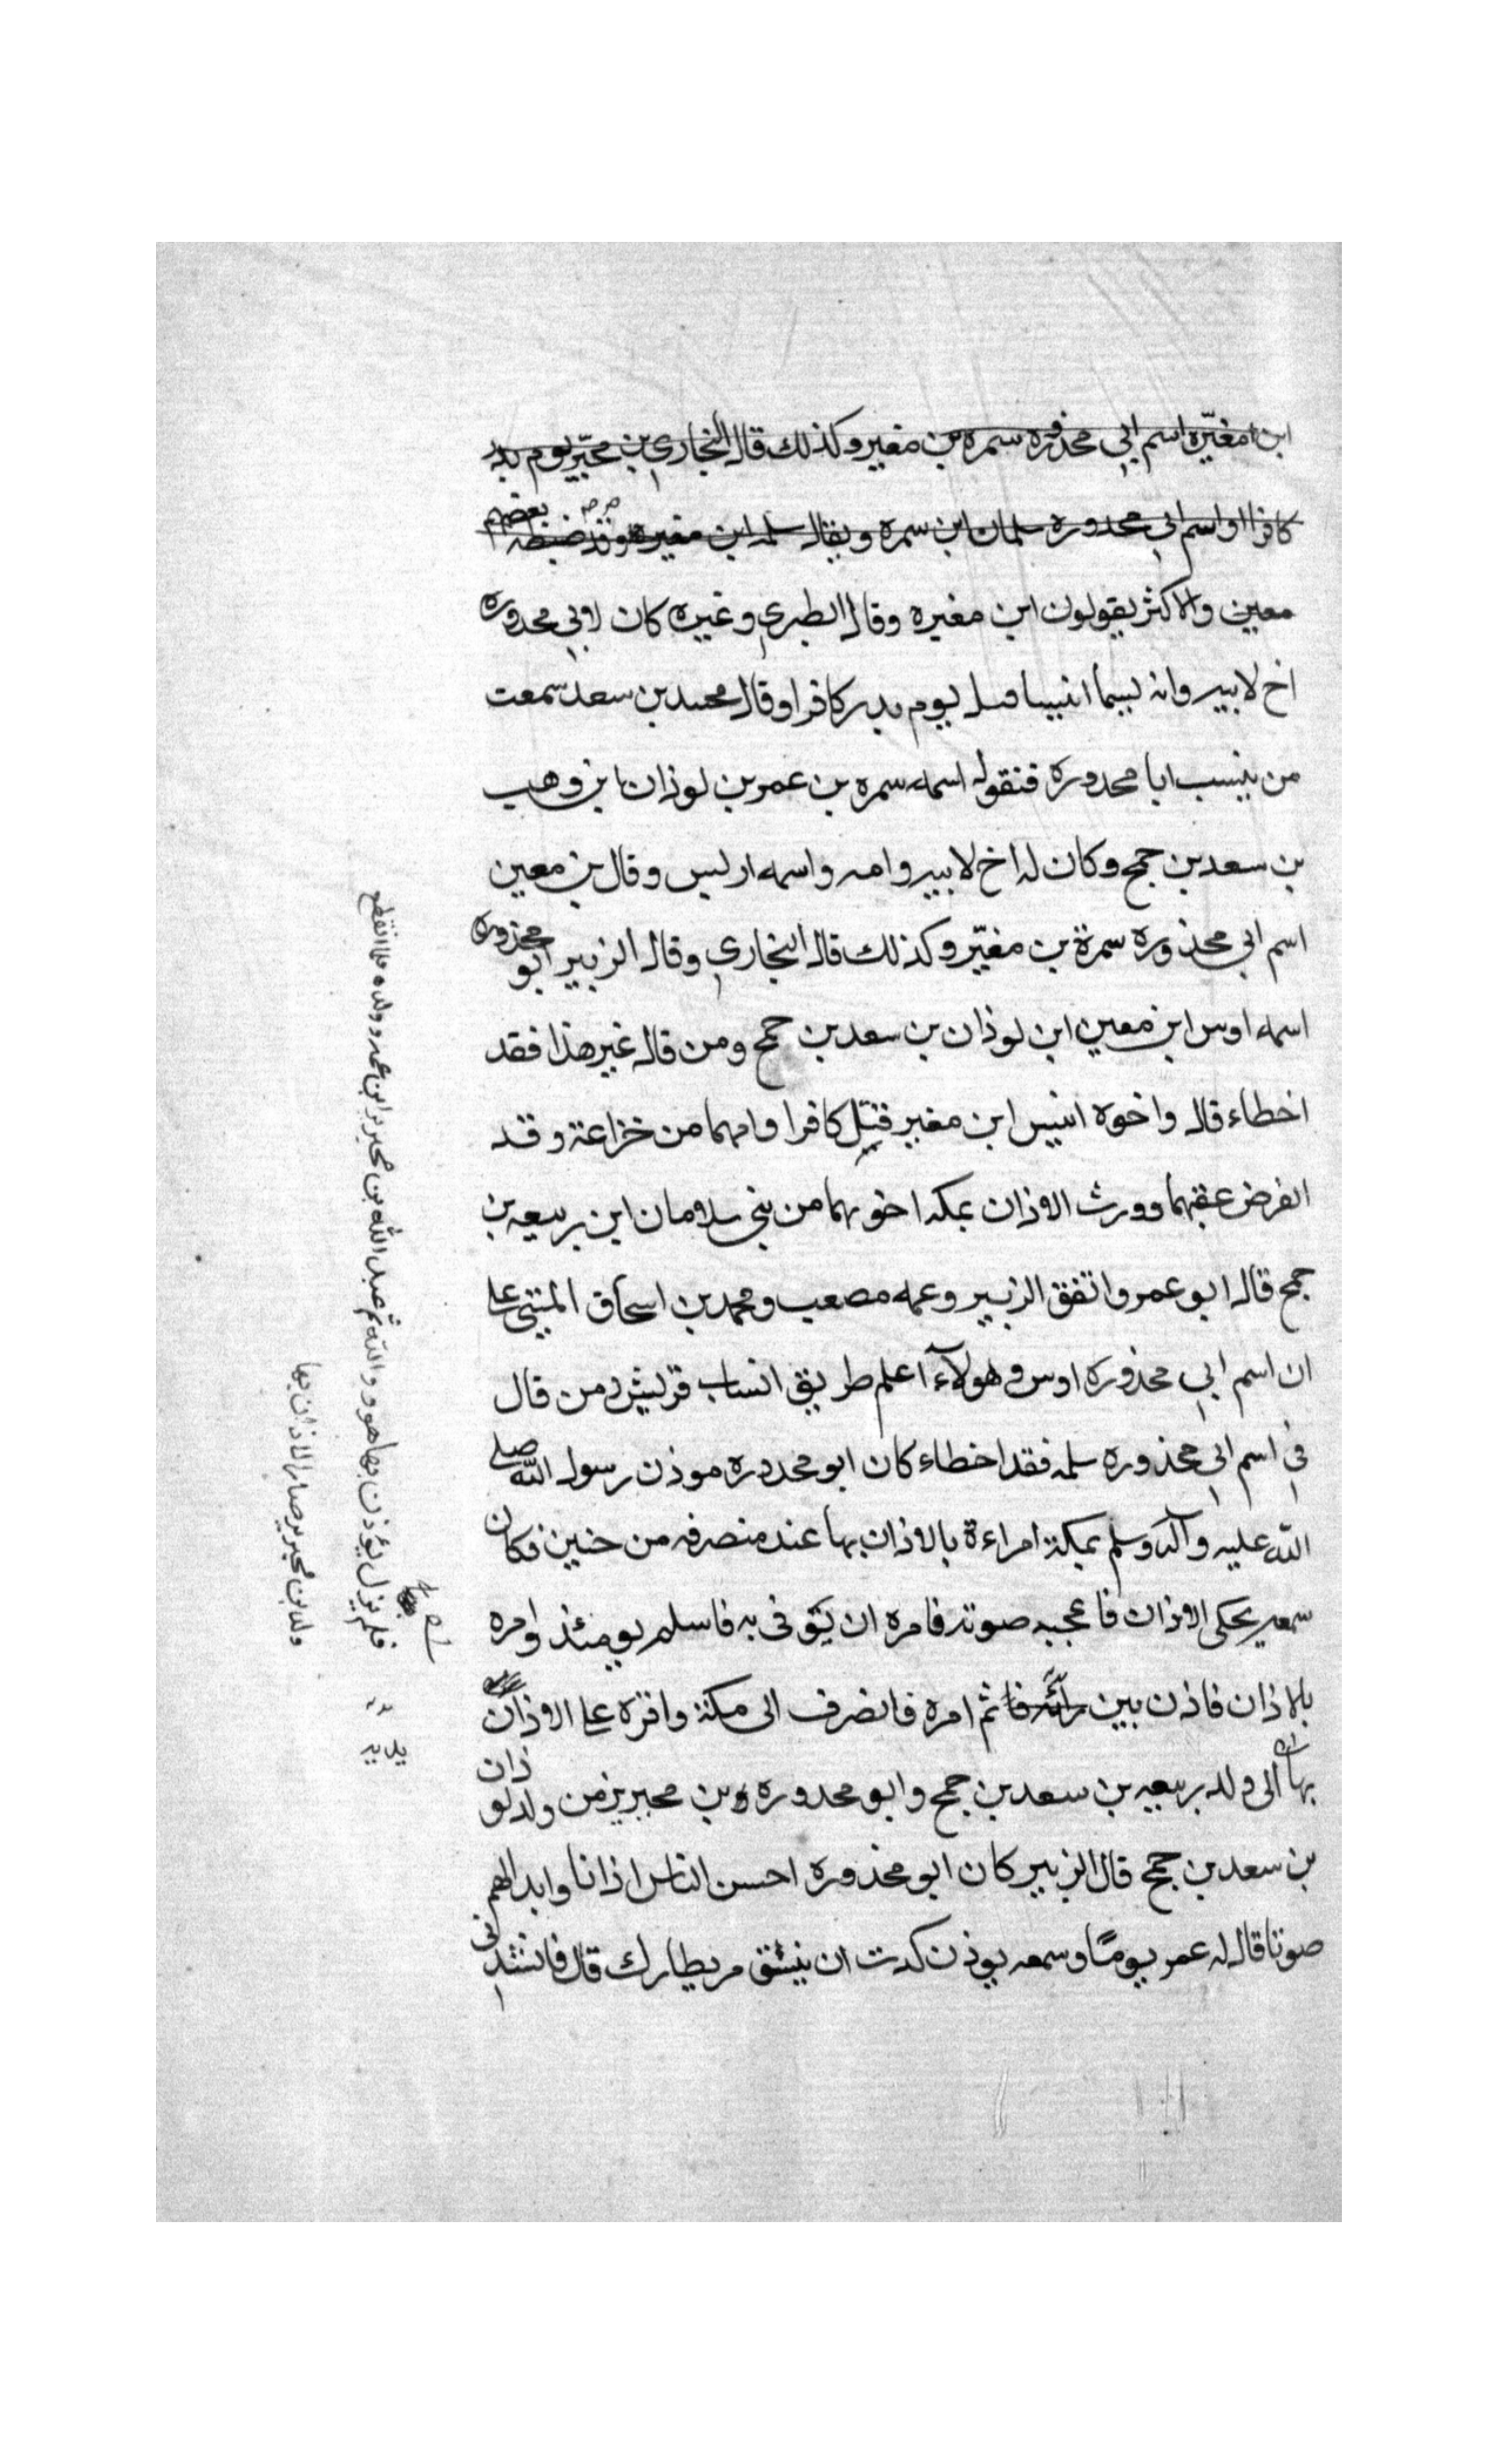 ابن امغيّره اسم ابي محذوره سمره بن مغير وكذلك قاله البخاري بن محيّر يوم بدر
كافرا واسم ابي محدوره سلمان ابن سمره ويقال سلمه ابن مغيره وقد ضبطه بعضهم
معين والاكثر يقولون ابن مغيره وقال الطبري وغيره كان لابي محدوره
اخ لابيه وانه يسما انيسا قتل يوم بدر كافرا وقال محمد بن سعد سمعت
من ينسب ابا محدورة فنقول اسمه سمره بن عمر بن لوذان ابن وهب
بن سعد بن جمح وكان له اخ لابيه وامه واسمه اوليس وقال بن معين
اسم ابي محذوره سمرة بن مغيّر وكذلك قاله البخاري وقاله الزبير ابو محذوره
اسمه اوس ابن معين ابن لوذان بن سعد بن جمح ومن قاله غير هذا فقد
اخطاء قاله واخوه انيس ابن مغير قتل كافرا وامهما من خزاعة وقد
انقرض عقبهما وورث الاذان بمكه اخوتهما من بني سلامان ابن ربيعه بن
جمح قاله ابو عمر واتفق الزبير وعمه مصعب ومحمد بن اسحاق المسيبي علي
ان اسم ابي محذوره اوس وهولآء اعلم طريق انساب قريش ومن قال
في اسم ابي محذوره سلمه فقد اخطاء كان ابو محدوره موذن رسول الله صلي
الله عليه وآله وسلم بمكة امراءة بالاذان بها عند منصرفه من حنين فكان
سمعه يحكي الاذان فاعجبه صوته فامره ان يؤتى به فاسلم يومئذ وامره
بالاذان فاذن بين ثم امره فانصرف الى مكة واقره علي الاذان
بها الى ولد ربيعه بن سعد بن جمح وابو محدوره وبن محيريز من ولد لوذان
بن سعد بن جمح قال الزبير كان ابو محذوره احسن الناس اذانا وانداهم
صوتا قاله له عمر يومًا وسمعه يوذن كدت ان ينشق مريطارك قال فانشدني
فلم يزل يؤذن بها هو وولده ثم عبد الله بن محيريز ابن عمه وولده فلما انقطع
ولد بن محيريز صار الاذان بها